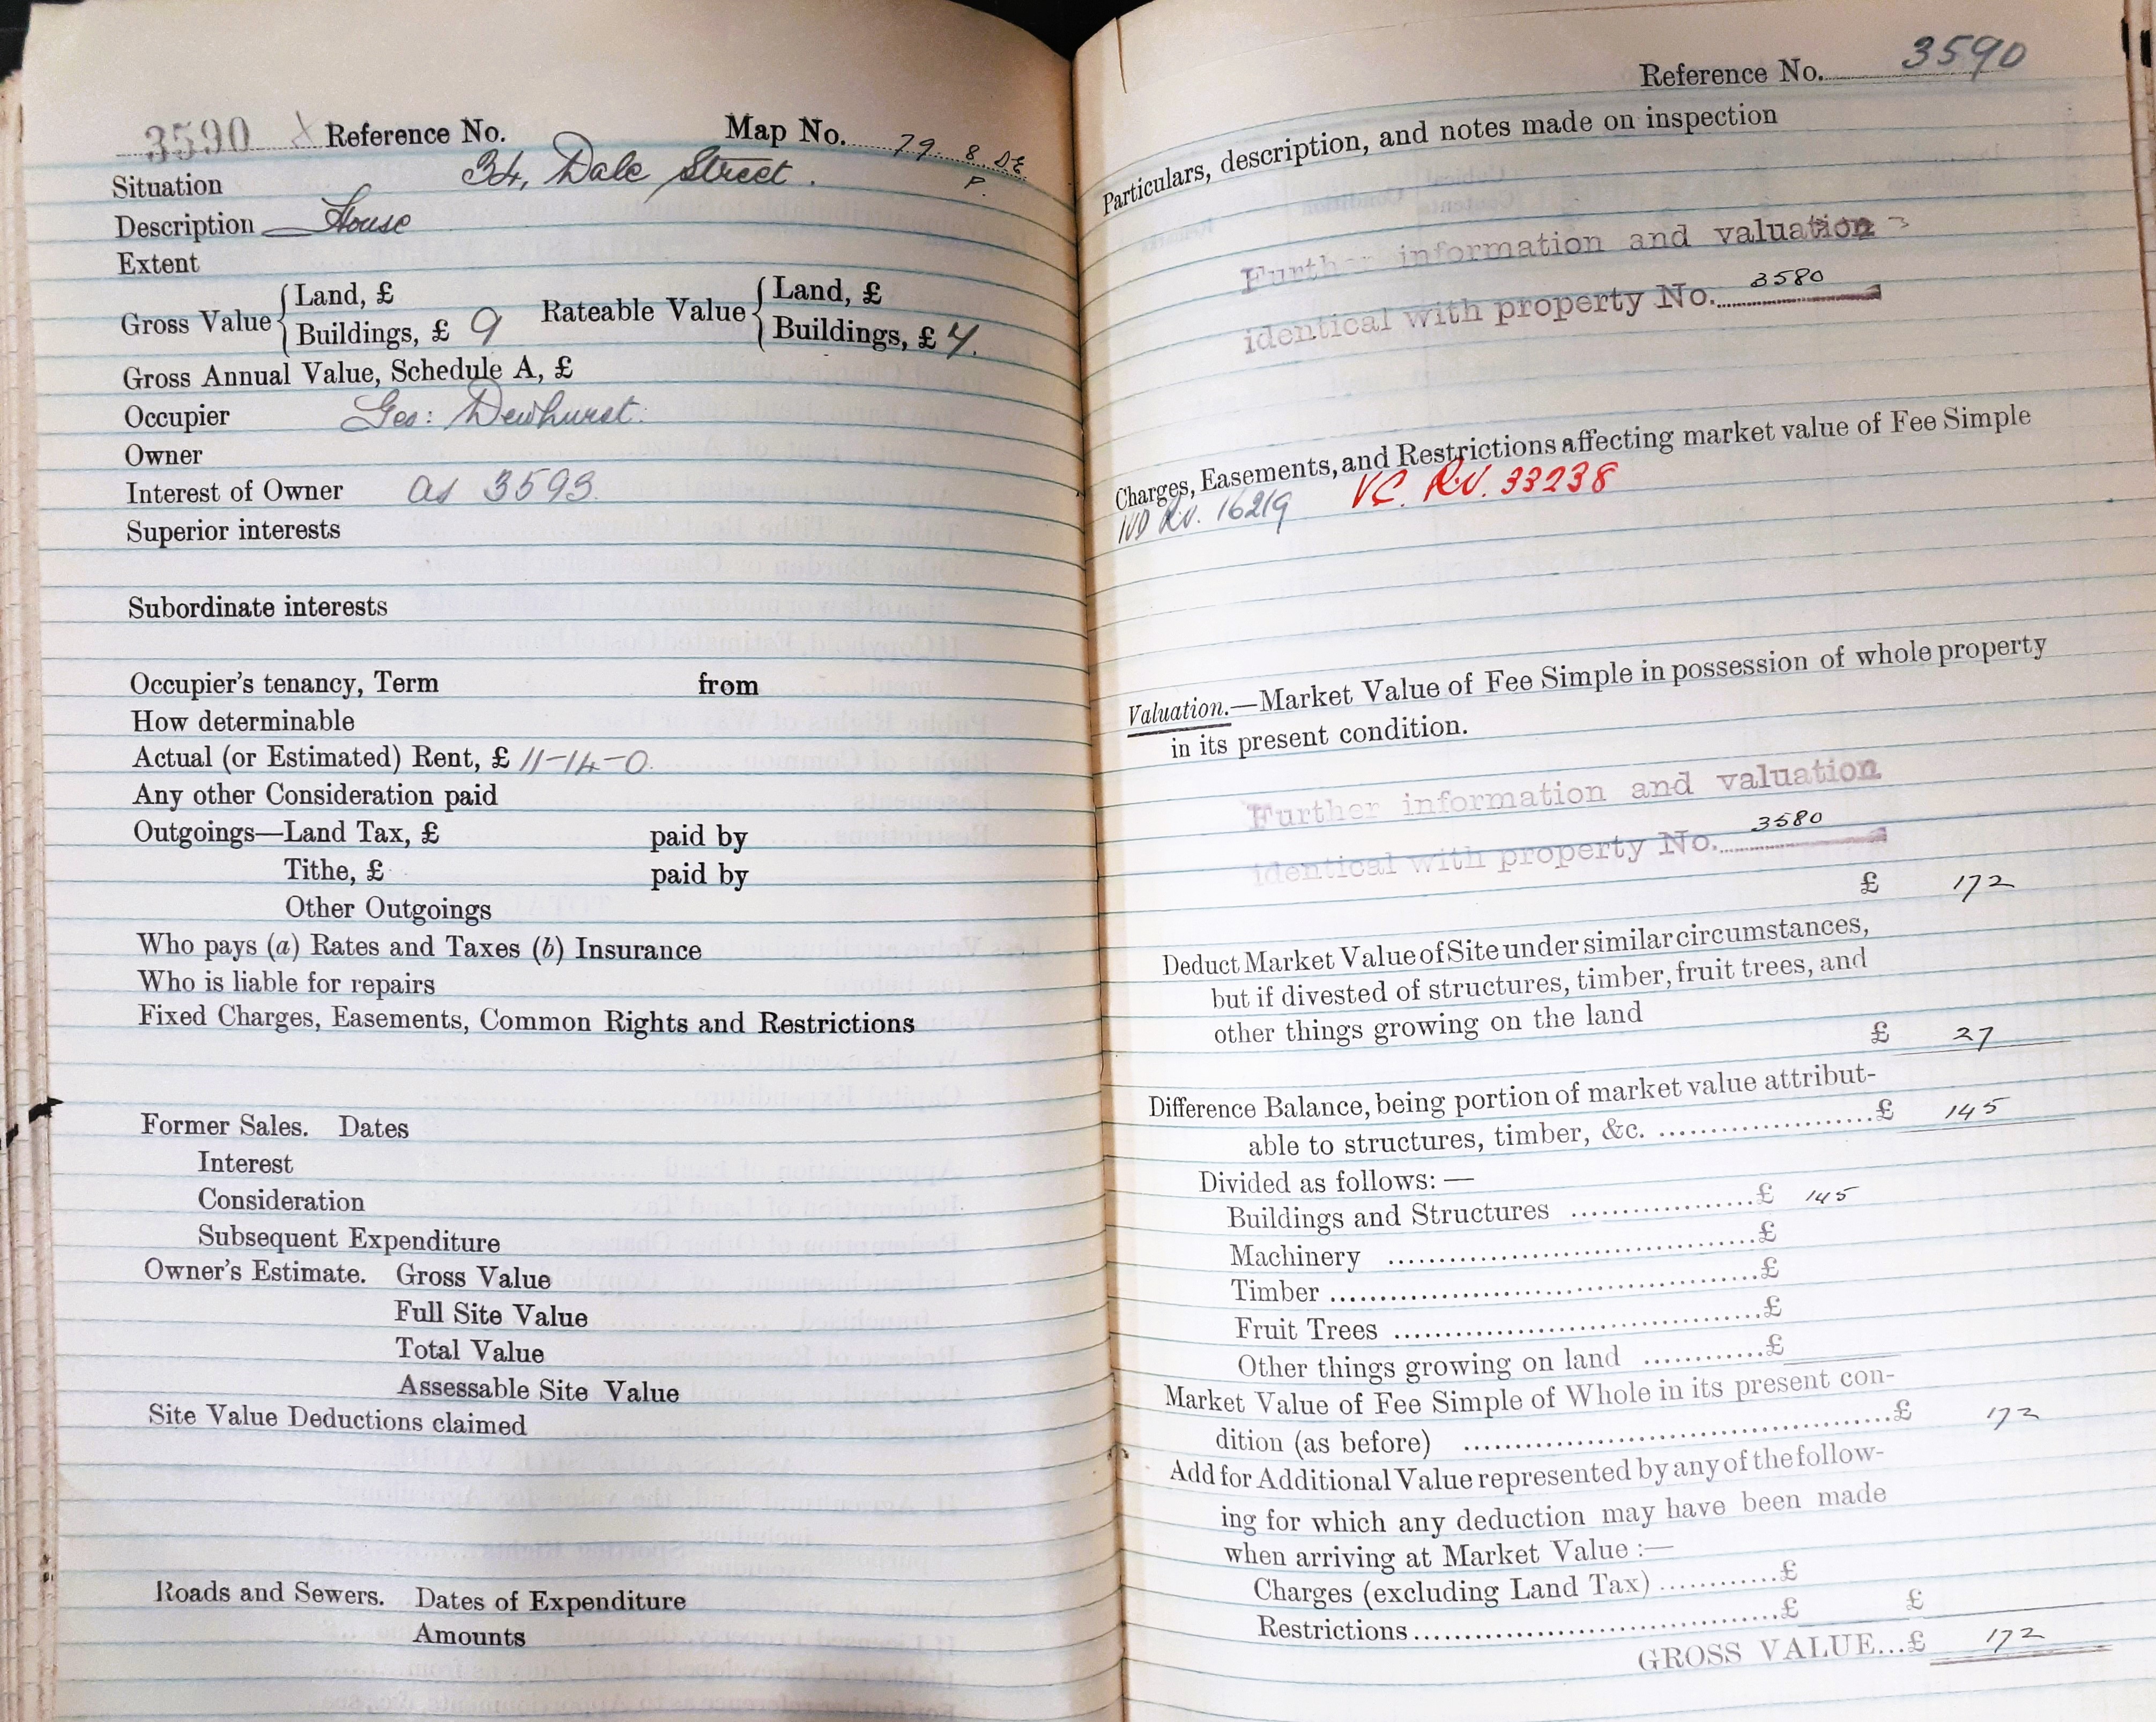 3590 Reference No. Map No. 79. 8. DE
P.
Situation 34, Dale Street.
Description House
Extent
Gross Value { Land, £
Buildings, £ 9
Rateable Value { Land, £
Buildings, £ 7.
Gross Annual Value, Schedule A, £
Occupier Geo: Dewhurst.
Owner
Interest of Owner as 3593.
Superior interests
Subordinate interests
Occupier's tenancy, Term from
How determinable
Actual (or Estimated) Rent, £ 11-14-0.
Any other Consideration paid
Outgoings—Land Tax, £ paid by
Tithe, £ paid by
Other Outgoings
Who pays (a) Rates and Taxes (b) Insurance
Who is liable for repairs
Fixed Charges, Easements, Common Rights and Restrictions
Former Sales. Dates
Interest
Consideration
Subsequent Expenditure
Owner's Estimate. Gross Value
Full Site Value
Total Value
Assessable Site Value
Site Value Deductions claimed
Roads and Sewers. Dates of Expenditure
Amounts
Reference No. 3590
Particulars, description, and notes made on inspection
Further information and valuation
identical with property No. 3580
Charges, Easements, and Restrictions affecting market value of Fee Simple
RV. 16219 VC. RV. 33238
Valuation.—Market Value of Fee Simple in possession of whole property
in its present condition.
Further information and valuation
identical with property No. 3580
£ 172
Deduct Market Value of Site under similar circumstances,
but if divested of structures, timber, fruit trees, and
other things growing on the land
£ 27
Difference Balance, being portion of market value attribut-
able to structures, timber, &c. ....................£ 145
Divided as follows: —
Buildings and Structures ..................£ 145
Machinery ....................................£
Timber ..........................................£
Fruit Trees ...................................£
Other things growing on land ............£
Market Value of Fee Simple of Whole in its present con-
dition (as before) ..........................................£ 172
Add for Additional Value represented by any of the follow-
ing for which any deduction may have been made
when arriving at Market Value :—
Charges (excluding Land Tax) ............£
Restrictions ....................................£ £
GROSS VALUE...£ 172